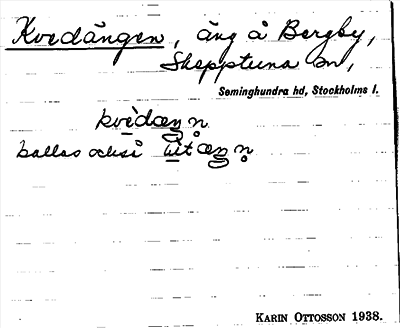 Kvedängen, äng å Bergby,
Skepptuna sn,
Seminghundra hd, Stockholms l.
kvedæŋn
kallas också
KARIN OTTOSSON 1938.